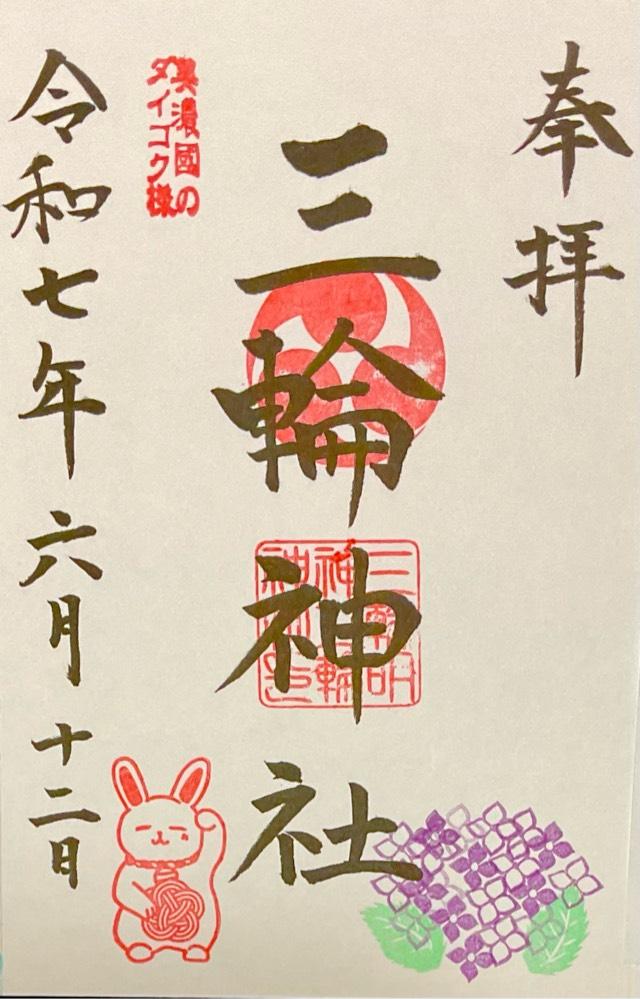 奉拝
三輪神社
美濃國の
ダイコク様
令和七年六月十二日